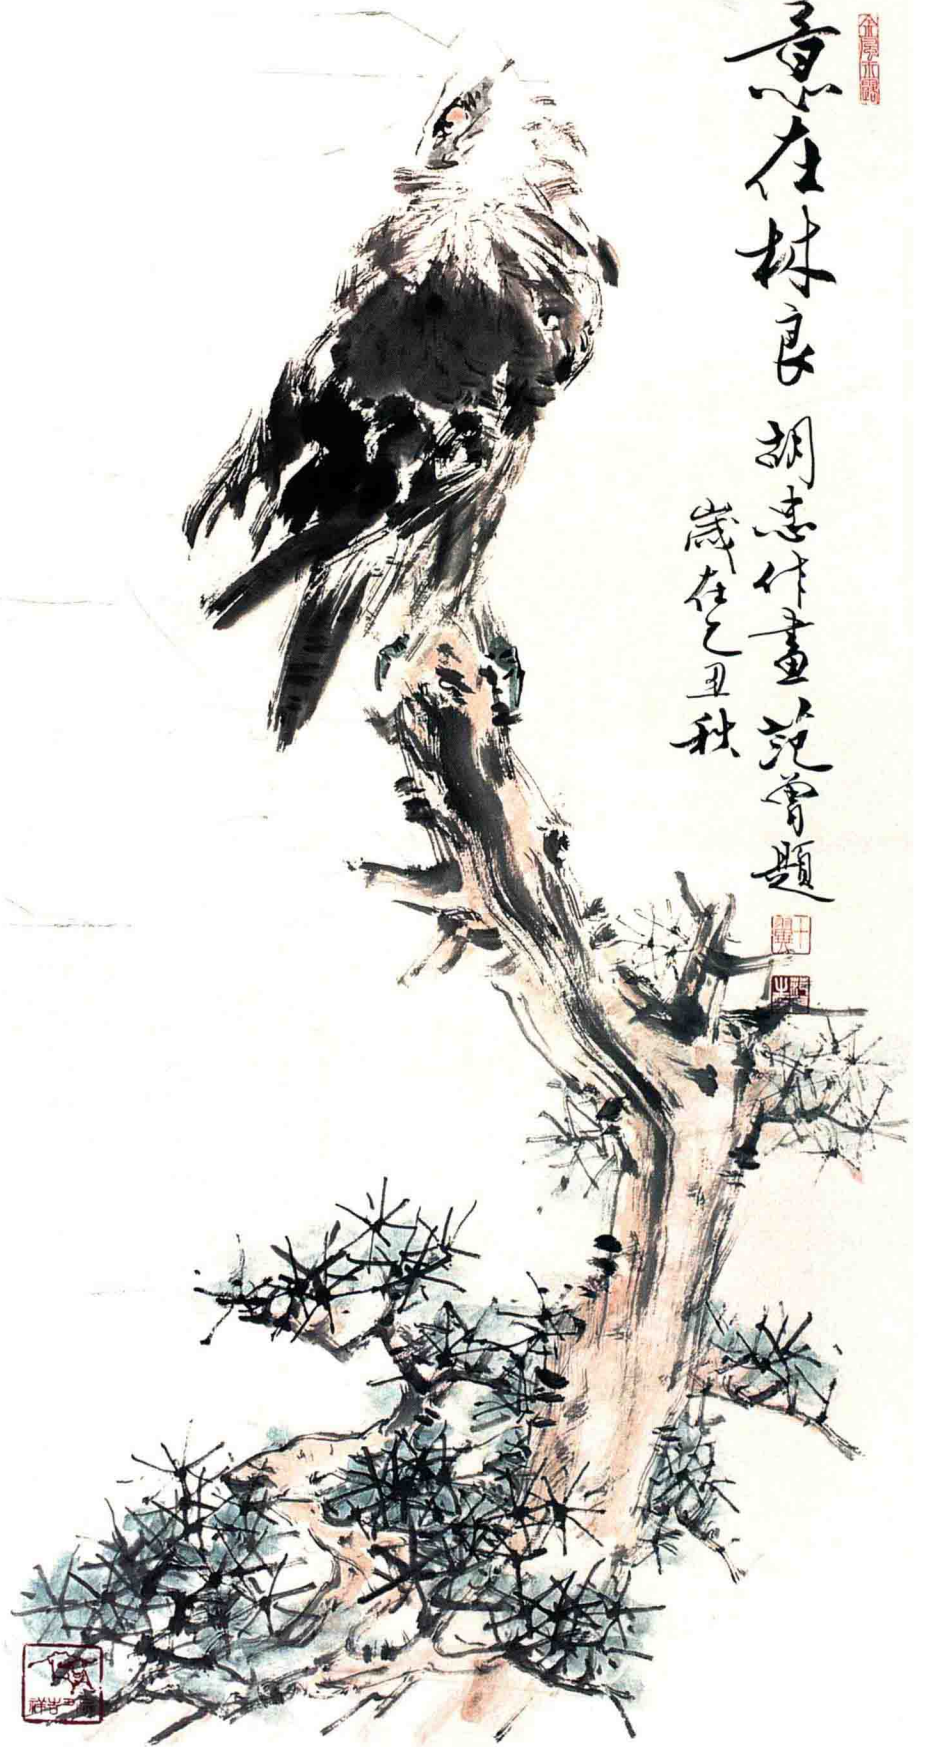 意在林良 胡志作畫 范曾題
歲在乙丑秋
十翼